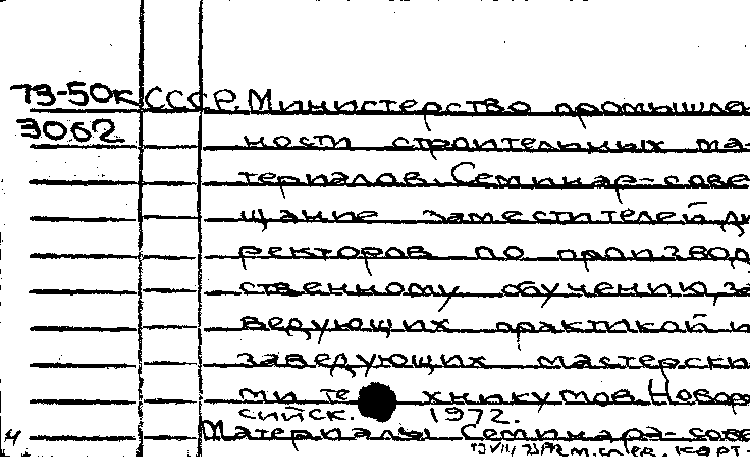 73-50к СССР. Министерство промышлен
3062 ности строительных ма-
териалов. Семинар-сове
щание заместителей ди
ректоров по производ
ственному обучению, за
ведующих практикой и
заведующих мастерски
ми техникумов. Новорос
сийск. 1972.
Материалы Семинара-сове